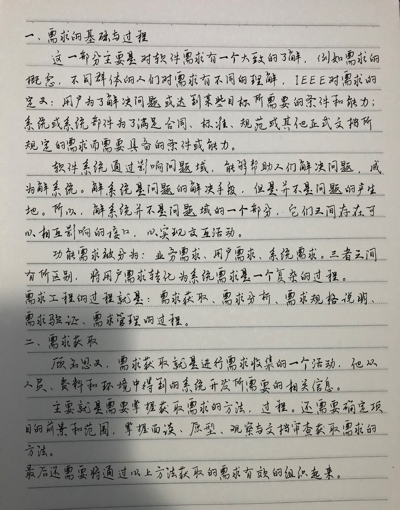 一、需求的基础与过程
这一部分主要是对软件需求有一个大致的了解，例如需求的
概念，不同群体的人们对需求有不同的理解，IEEE对需求的
定义：用户为了解决问题或达到某些目标所需要的条件和能力；
系统或系统部件为了满足合同、标准、规范或其他正式文档所
规定的需求而需要具备的条件或能力。
软件系统通过影响问题域，能够帮助人们解决问题，成
为解系统。解系统是问题的解决手段，但是并不是问题的产生
地。所以，解系统并不是问题域的一个部分，它们之间存在可
以相互影响的接口，以实现交互活动。
功能需求被分为：业务需求、用户需求、系统需求。三者之间
有所区别，将用户需求转化为系统需求是一个复杂的过程。
需求工程的过程就是：需求获取、需求分析、需求规格说明、
需求验证、需求管理的过程。
二、需求获取
顾名思义，需求获取就是进行需求收集的一个活动，他从
人员、资料和环境中得到的系统开发所需要的相关信息。
主要就是需要掌握获取需求的方法，过程。还需要确定项
目的前景和范围，掌握面谈、原型、观察与文档审查获取需求的
方法。
最后还需要将通过以上方法获取的需求有效的组织起来。